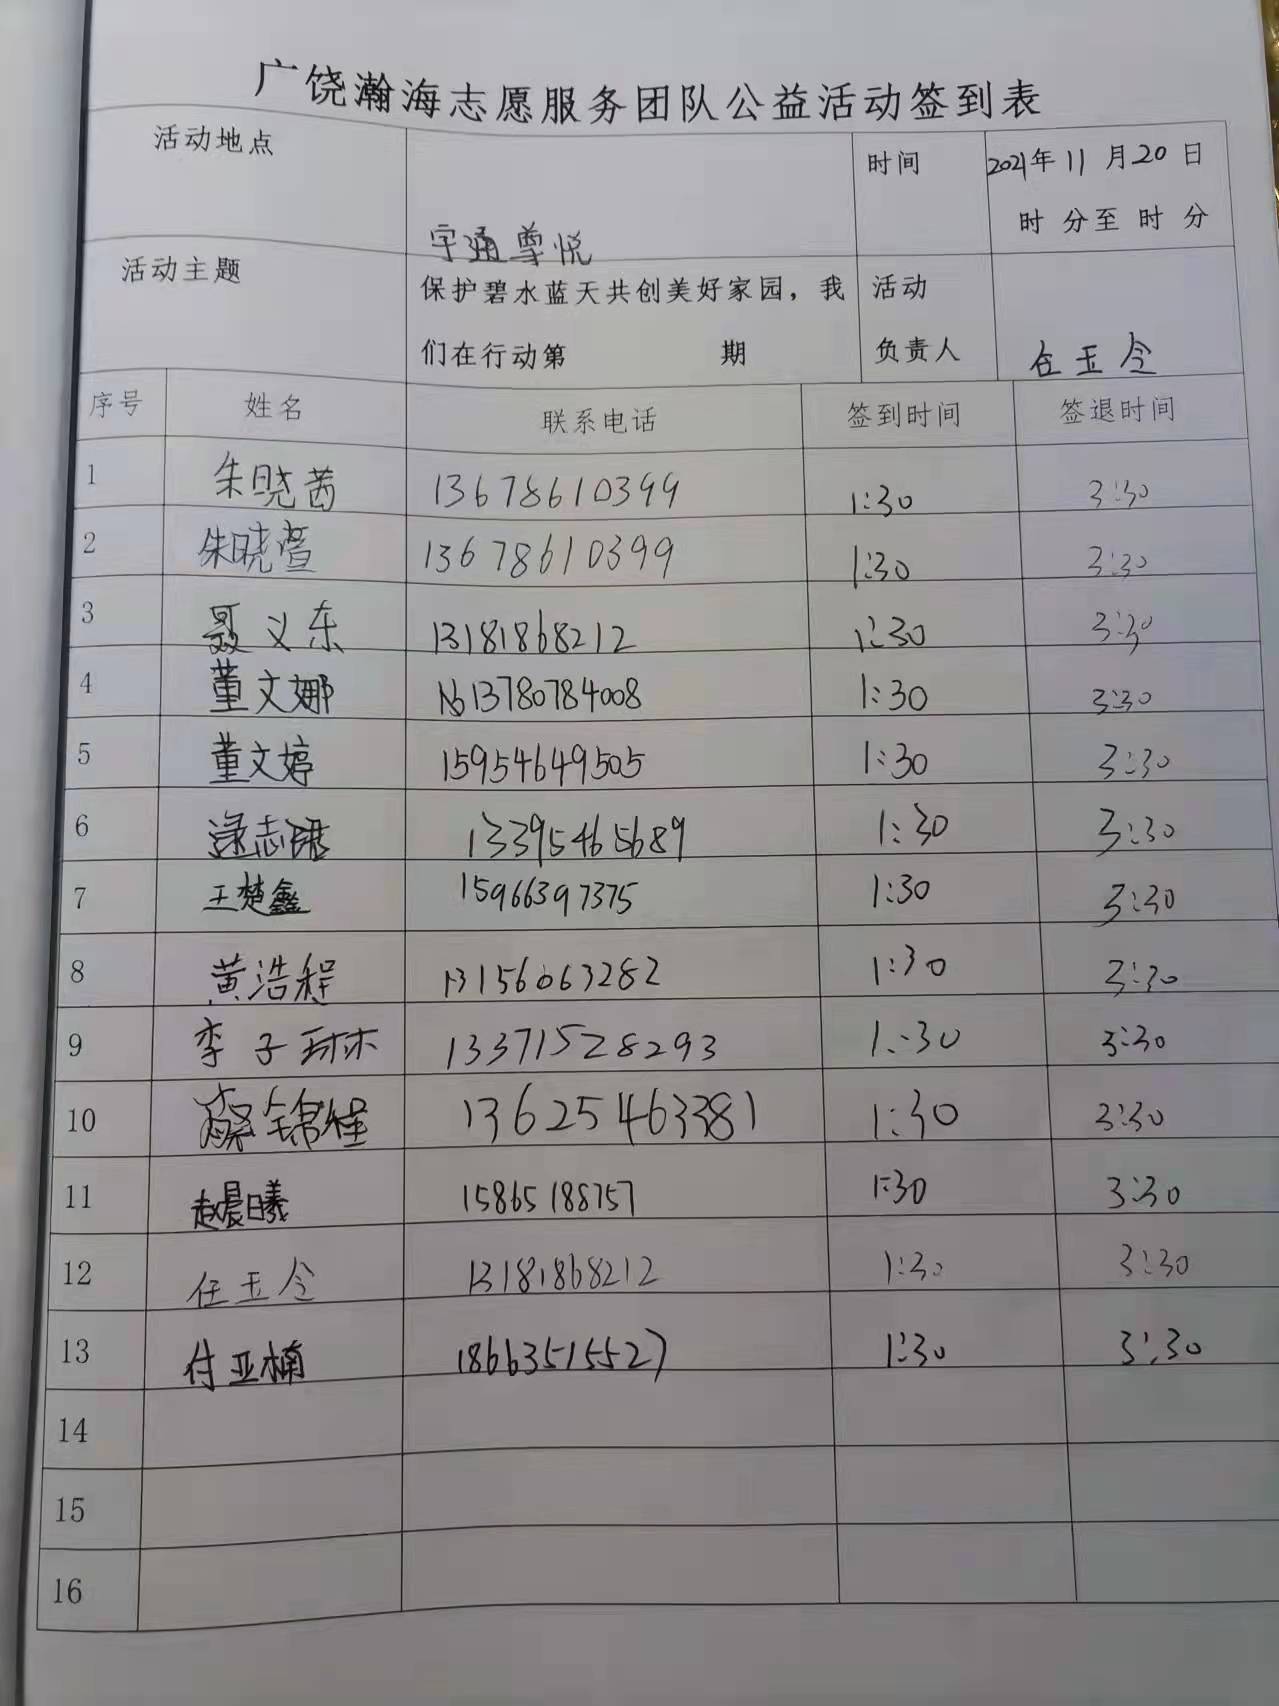 广饶瀚海志愿服务团队公益活动签到表
活动地点 宇通尊悦 时间 2021年11月20日
时 分至 时 分
活动主题 保护碧水蓝天共创美好家园，我 活动
们在行动第 期 负责人 任玉令
序号 姓名 联系电话 签到时间 签退时间
1 朱晓茜 13678610399 1:30 3:30
2 朱晓萱 13678610399 1:30 3:30
3 聂义东 13181868212 1:30 3:30
4 董文娜 13780784008 1:30 3:30
5 董文婷 15954649505 1:30 3:30
6 13395465689 1:30 3:30
7 王楚鑫 15966397375 1:30 3:30
8 黄浩程 13156063282 1:30 3:30
9 李子琳 13371528293 1:30 3:30
10 13625463381 1:30 3:30
11 赵晨曦 15865188757 1:30 3:30
12 任玉令 13181868212 1:30 3:30
13 付亚楠 18663515527 1:30 3:30
14
15
16